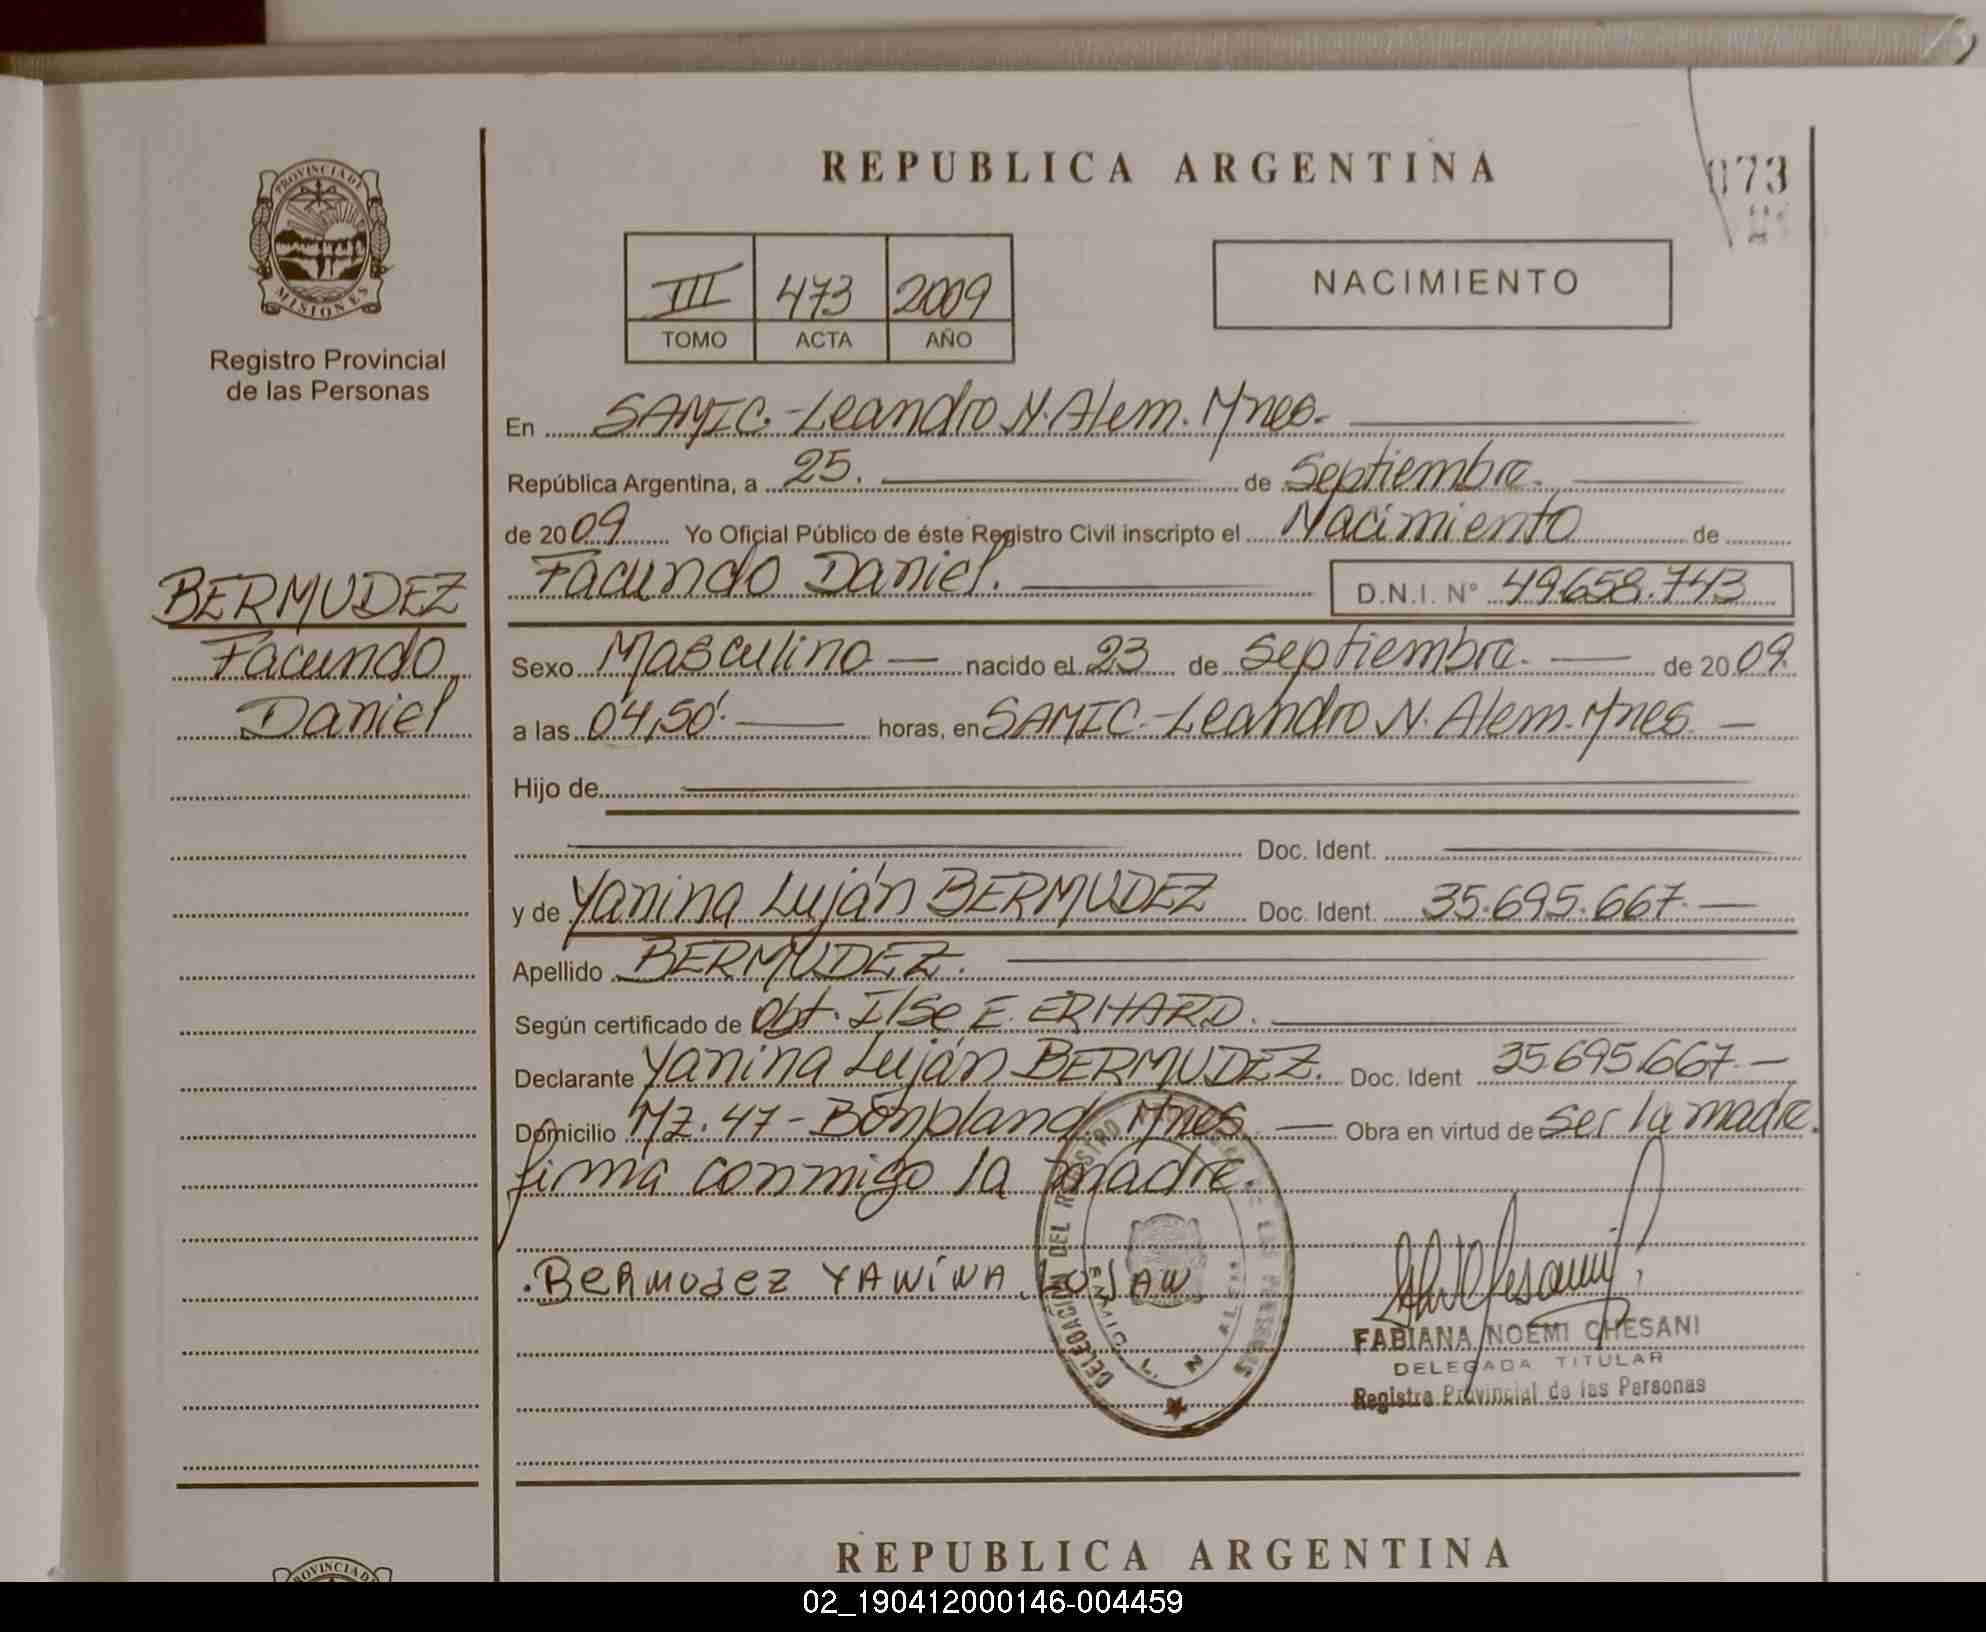 REPUBLICA ARGENTINA
073
PROVINCIA DE
MISIONES
Registro Provincial
de las Personas
III 473 2009
TOMO ACTA AÑO
NACIMIENTO
En SAMIC.-Leandro N. Alem. Mnes.-
República Argentina, a 25. de Septiembre.
de 2009 Yo Oficial Público de éste Registro Civil inscripto el Nacimiento de
Facundo Daniel. D.N.I. N° 49.658.743
BERMUDEZ
Facundo
Daniel
Sexo Masculino — nacido el 23 de Septiembre. — de 2009.
a las 04,50'. — horas, en SAMIC.-Leandro N. Alem. Mnes. —
Hijo de
Doc. Ident.
y de Yanina Luján BERMUDEZ Doc. Ident. 35.695.667. —
Apellido BERMUDEZ.
Según certificado de Obt. Ilse E. ERHARD.
Declarante Yanina Luján BERMUDEZ. Doc. Ident 35.695.667. —
Domicilio Mz. 47 - Bonpland Mnes. — Obra en virtud de ser la madre.
firma conmigo la madre.
.BERMUDEZ YANINA LUJAN
DELEGACION DEL REGISTRO DE LAS PERSONAS
L. N. ALEM
FABIANA NOEMI CHESANI
DELEGADA TITULAR
Registro Provincial de las Personas
REPUBLICA ARGENTINA
PROVINCIA D
02_190412000146-004459